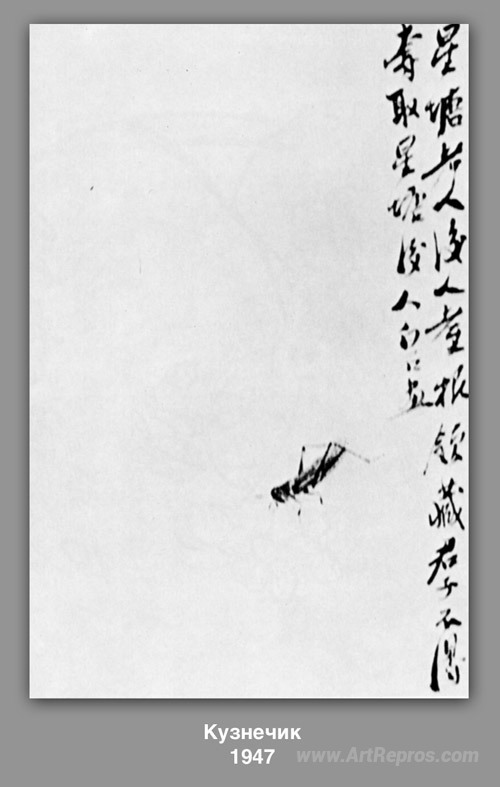 星塘老人後人根領藏君子不得
取星塘後人白石
Кузнечик
1947
www.ArtRepros.com